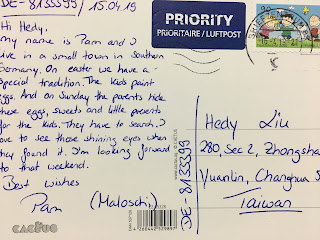 DE-8135399 / 15.04.19
Hi Hedy,
my name is Pam and I
live in a small town in southern
Germany. On easter we have a
special tradition. The kids paint
eggs. And on sunday the parents hide
these eggs, sweets and little presents
for the kids. They have to search, I
love to see these shining eyes when
they found it. I'm looking forward
to that weekend.
Best wishes
Pam (Maloschi)
CACTUS
PRIORITY
PRIORITAIRE / LUFTPOST
DE-8135399
Hedy Liu
280, Sec 2, Zhongsha
Yuanlin, Changhua
Taiwan